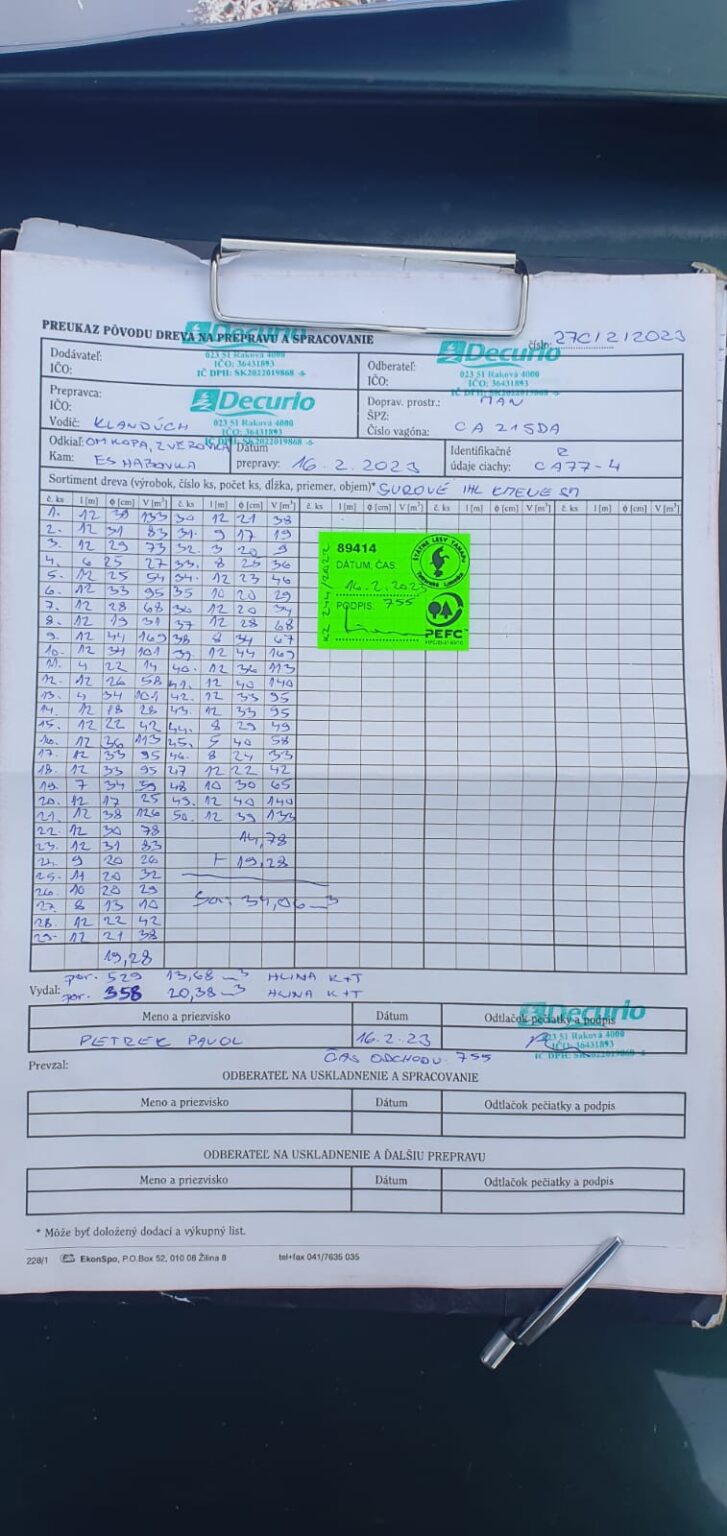 PREUKAZ PÔVODU DREVA NA PREPRAVU A SPRACOVANIE
číslo: 27C/2/2023
Decurio
023 51 Raková 4000
IČO: 36431893
IČ DPH: SK2022019868
Decurio
023 51 Raková 4000
IČO: 36431893
IČ DPH: SK2022019868
Dodávateľ:
IČO:
Odberateľ:
IČO:
Prepravca:
IČO:
Vodič: KLANDÚCH
Decurio
023 51 Raková 4000
IČO: 36431893
IČ DPH: SK2022019868
Doprav. prostr.: MAN
ŠPZ:
Číslo vagóna: CA 215DA
Odkiaľ: OM KOPA, ZVEROVKA
Kam: ES HABOVKA
Dátum
prepravy: 16.2.2023
Identifikačné
údaje ciachy: CA77-4
Sortiment dreva (výrobok, číslo ks, počet ks, dĺžka, priemer, objem)* SUROVÉ IHL KMENE
č. ks l [m] ϕ [cm] V [m³] č. ks l [m] ϕ [cm] V [m³] č. ks l [m] ϕ [cm] V [m³] č. ks l [m] ϕ [cm] V [m³] č. ks l [m] ϕ [cm] V [m³]
1. 12 39 133 30 12 21 38
2. 12 31 83 31. 9 17 19
3. 12 29 73 32. 3 20 9
4. 6 25 27 33. 8 25 36
5. 12 25 54 34. 12 23 46
6. 12 33 95 35 10 20 29
7. 12 28 68 36 12 20 34
8. 12 19 31 37 12 28 68
9. 12 44 169 38 8 34 67
10. 12 34 101 39. 12 44 169
11. 4 22 14 40. 12 36 113
12. 12 26 58 41. 12 40 140
13. 4 34 101 42. 12 33 95
14. 12 18 28 43. 12 33 95
15. 12 22 42 44. 8 29 49
16. 12 36 113 45. 5 40 58
17. 12 33 95 46. 8 24 33
18. 12 33 95 47 12 22 42
19. 7 34 59 48 10 30 65
20. 12 17 25 49. 12 40 140
21. 12 38 126 50. 12 39 133
22. 12 30 78 14,78
23. 12 31 83 + 19,28
24. 9 20 26
25. 11 20 32
26. 10 20 29
27. 8 13 10 34,06 m3
28. 12 22 42
29. 12 21 38
19,28
89414
ŠTÁTNE LESY TANAPU
DÁTUM, ČAS:
16.2.2023
PODPIS: 755
PEFC
Vydal: por. 529 13,68 m3 HLINA K+T
por. 358 20,38 m3 HLINA K+T
Meno a priezvisko Dátum Odtlačok pečiatky a podpis
PETREK PAVOL 16.2.23
Decurio
023 51 Raková 4000
IČO: 36431893
IČ DPH: SK2022019868
Prevzal: ČAS ODCHODU 755
ODBERATEĽ NA USKLADNENIE A SPRACOVANIE
Meno a priezvisko Dátum Odtlačok pečiatky a podpis
ODBERATEĽ NA USKLADNENIE A ĎALŠIU PREPRAVU
Meno a priezvisko Dátum Odtlačok pečiatky a podpis
* Môže byť doložený dodací a výkupný list.
228/1 EkonSpo, P.O.Box 52, 010 08 Žilina 8 tel+fax 041/7635 035